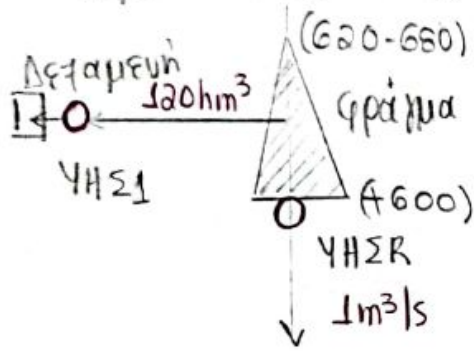 (620-680)
Δεξαμενή
120hm³
φράγμα
ΥΗΣ1
(+600)
ΥΗΣR
1m³/s